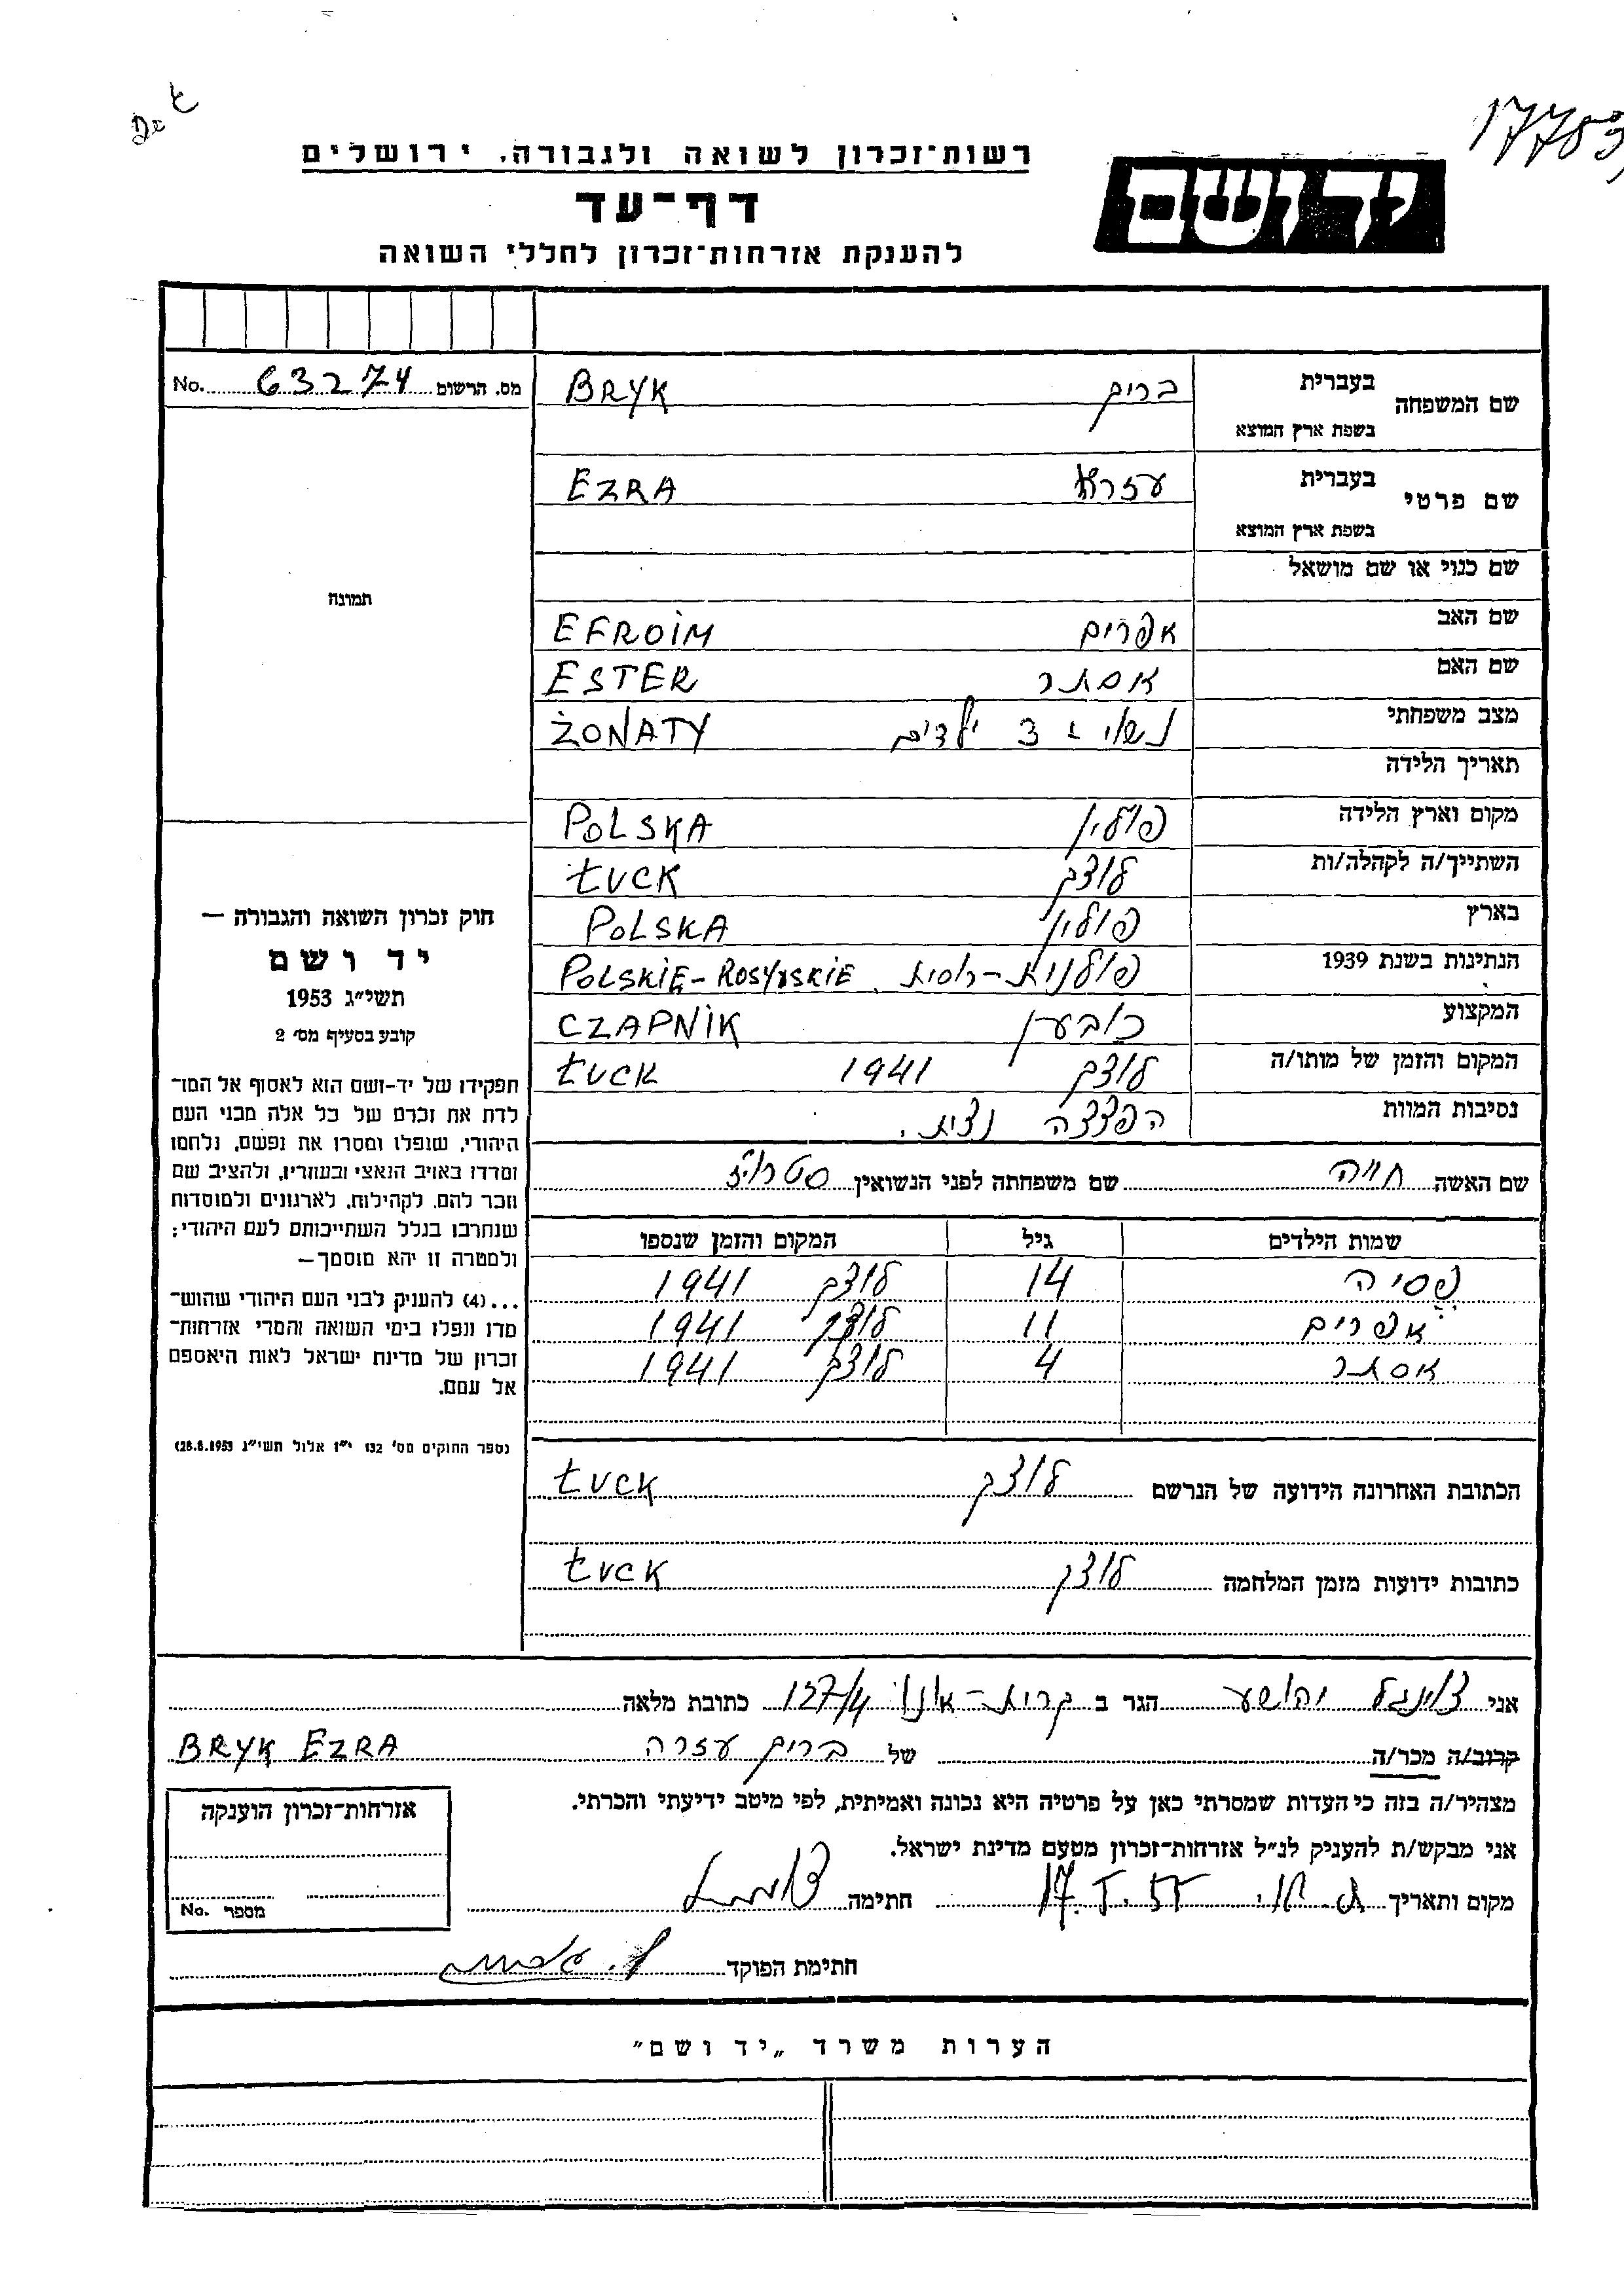 17783
רשות־זכרון לשואה ולגבורה, ירושלים
יד ושם
דף־עד
להענקת אזרחות־זכרון לחללי השואה
מס. הרשום 63274 No.
שם המשפחה
בעברית
בשפת ארץ המוצא
בריק BRYK
שם פרטי
בעברית
בשפת ארץ המוצא
עזרא EZRA
שם כנוי או שם מושאל
שם האב אפרים EFROIM
שם האם אסתר ESTER
מצב משפחתי נשוי + 3 ילדים ŻONATY
תאריך הלידה
מקום וארץ הלידה פולין POLSKA
השתייך/ה לקהלה/ות לוצק ŁUCK
בארץ פולין POLSKA
הנתינות בשנת 1939 פולנית-רוסית POLSKIE-ROSYJSKIE
המקצוע כובען CZAPNIK
המקום והזמן של מותו/ה לוצק 1941 ŁUCK
נסיבות המוות הפצצה נצית.
שם האשה חייה שם משפחתה לפני הנשואין
שמות הילדים גיל המקום והזמן שנספו
פסיה 14 לוצק 1941
אפרים 11 לוצק 1941
אסתר 4 לוצק 1941
הכתובת האחרונה הידועה של הנרשם לוצק ŁUCK
כתובות ידועות מזמן המלחמה לוצק ŁUCK
תמונה
חוק זכרון השואה והגבורה —
יד ושם
תשי״ג 1953
קובע בסעיף מס׳ 2
תפקידו של יד-ושם הוא לאסוף אל המו־
לדת את זכרם של כל אלה מבני העם
היהודי, שנפלו ומסרו את נפשם, נלחמו
ומרדו באויב הנאצי ובעוזריו, ולהציב שם
וזכר להם, לקהילות, לארגונים ולמוסדות
שנחרבו בגלל השתייכותם לעם היהודי;
ולמטרה זו יהא מוסמך—
...(4) להעניק לבני העם היהודי שהוש־
מדו ונפלו בימי השואה והמרי אזרחות־
זכרון של מדינת ישראל לאות היאספם
אל עמם.
(ספר החוקים מס׳ 132 י״ז אלול תשי״ג 28.8.1953)
אני יהושע הגר ב קרית-אונו 127/4 כתובת מלאה
קרוב/ה מכר/ה של בריק עזרה BRYK EZRA
מצהיר/ה בזה כי העדות שמסרתי כאן על פרטיה היא נכונה ואמיתית, לפי מיטב ידיעתי והכרתי.
אני מבקש/ת להעניק לנ״ל אזרחות־זכרון מטעם מדינת ישראל.
מקום ותאריך חתימה
חתימת הפוקד
אזרחות־זכרון הוענקה
מספר No.
הערות משרד „יד ושם״